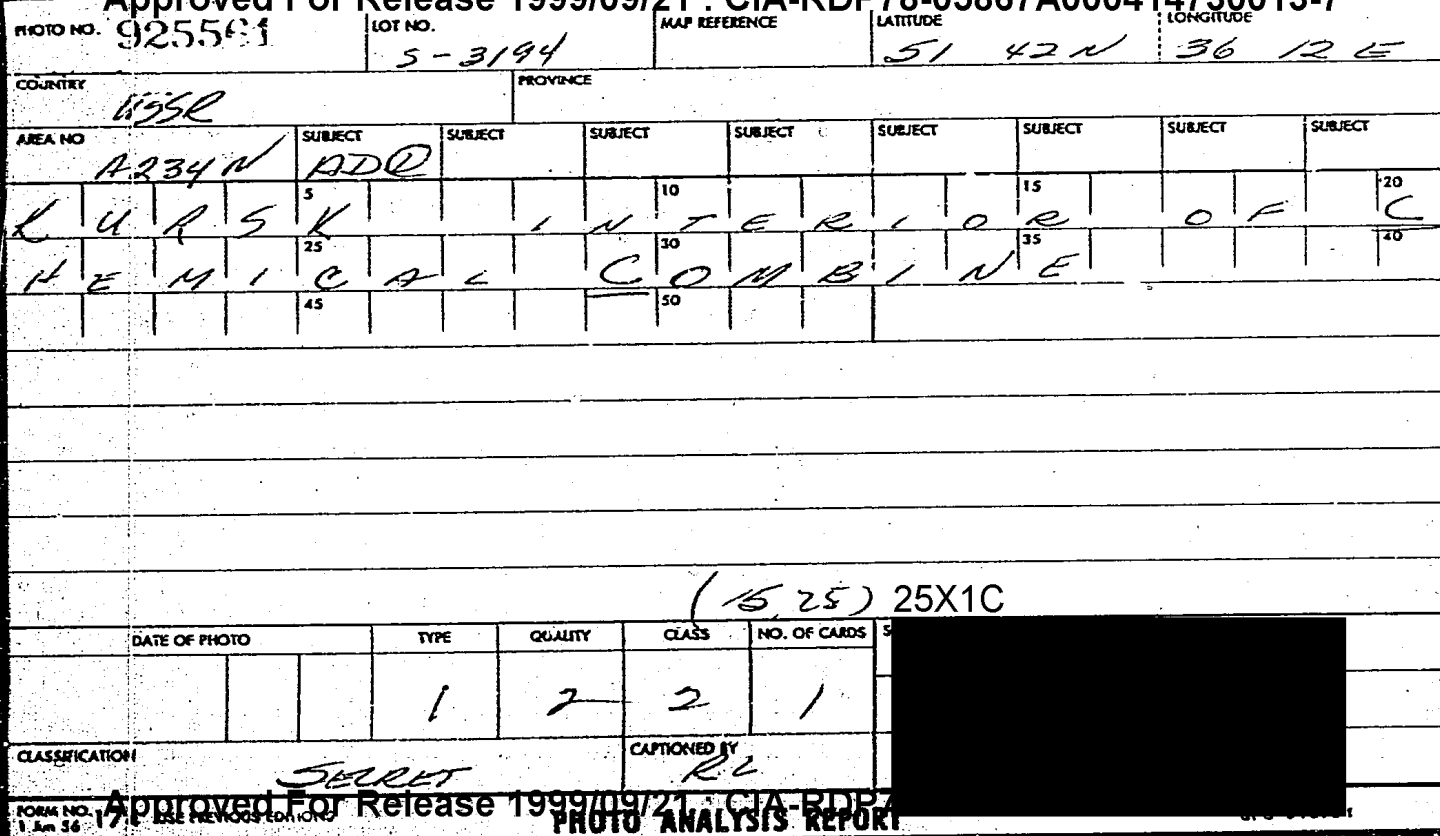 Approved For Release 1999/09/21 : CIA-RDP78-03867A000414730013-7
PHOTO NO. 925561 LOT NO. S-3194 MAP REFERENCE LATITUDE 51 42N LONGITUDE 36 12 E
COUNTRY USSR PROVINCE
AREA NO A234N SUBJECT AD② SUBJECT SUBJECT SUBJECT SUBJECT SUBJECT SUBJECT SUBJECT
5 10 15 20
KURSK INTERIOR OF C
25 30 35 40
HEMICAL COMBINE
45 50
(15,25) 25X1C
DATE OF PHOTO TYPE QUALITY CLASS NO. OF CARDS S
1 2 2 1
CLASSIFICATION SECRET CAPTIONED BY RL
Approved For Release 1999/09/21 : CIA-RDP7
FORM NO. 17 USE PREVIOUS EDITIONS
1 Jun 56 PHOTO ANALYSIS REPORT